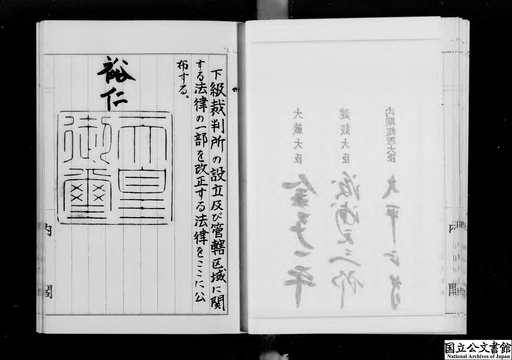 下級裁判所の設立及び管轄区域に関
する法律の一部を改正する法律をここに公
布する。
裕仁
天皇
御璽
内閣
内閣総理大臣
大平正芳
建設大臣
渡海元三郎
大蔵大臣
金子一平
国立公文書館
National Archives of Japan